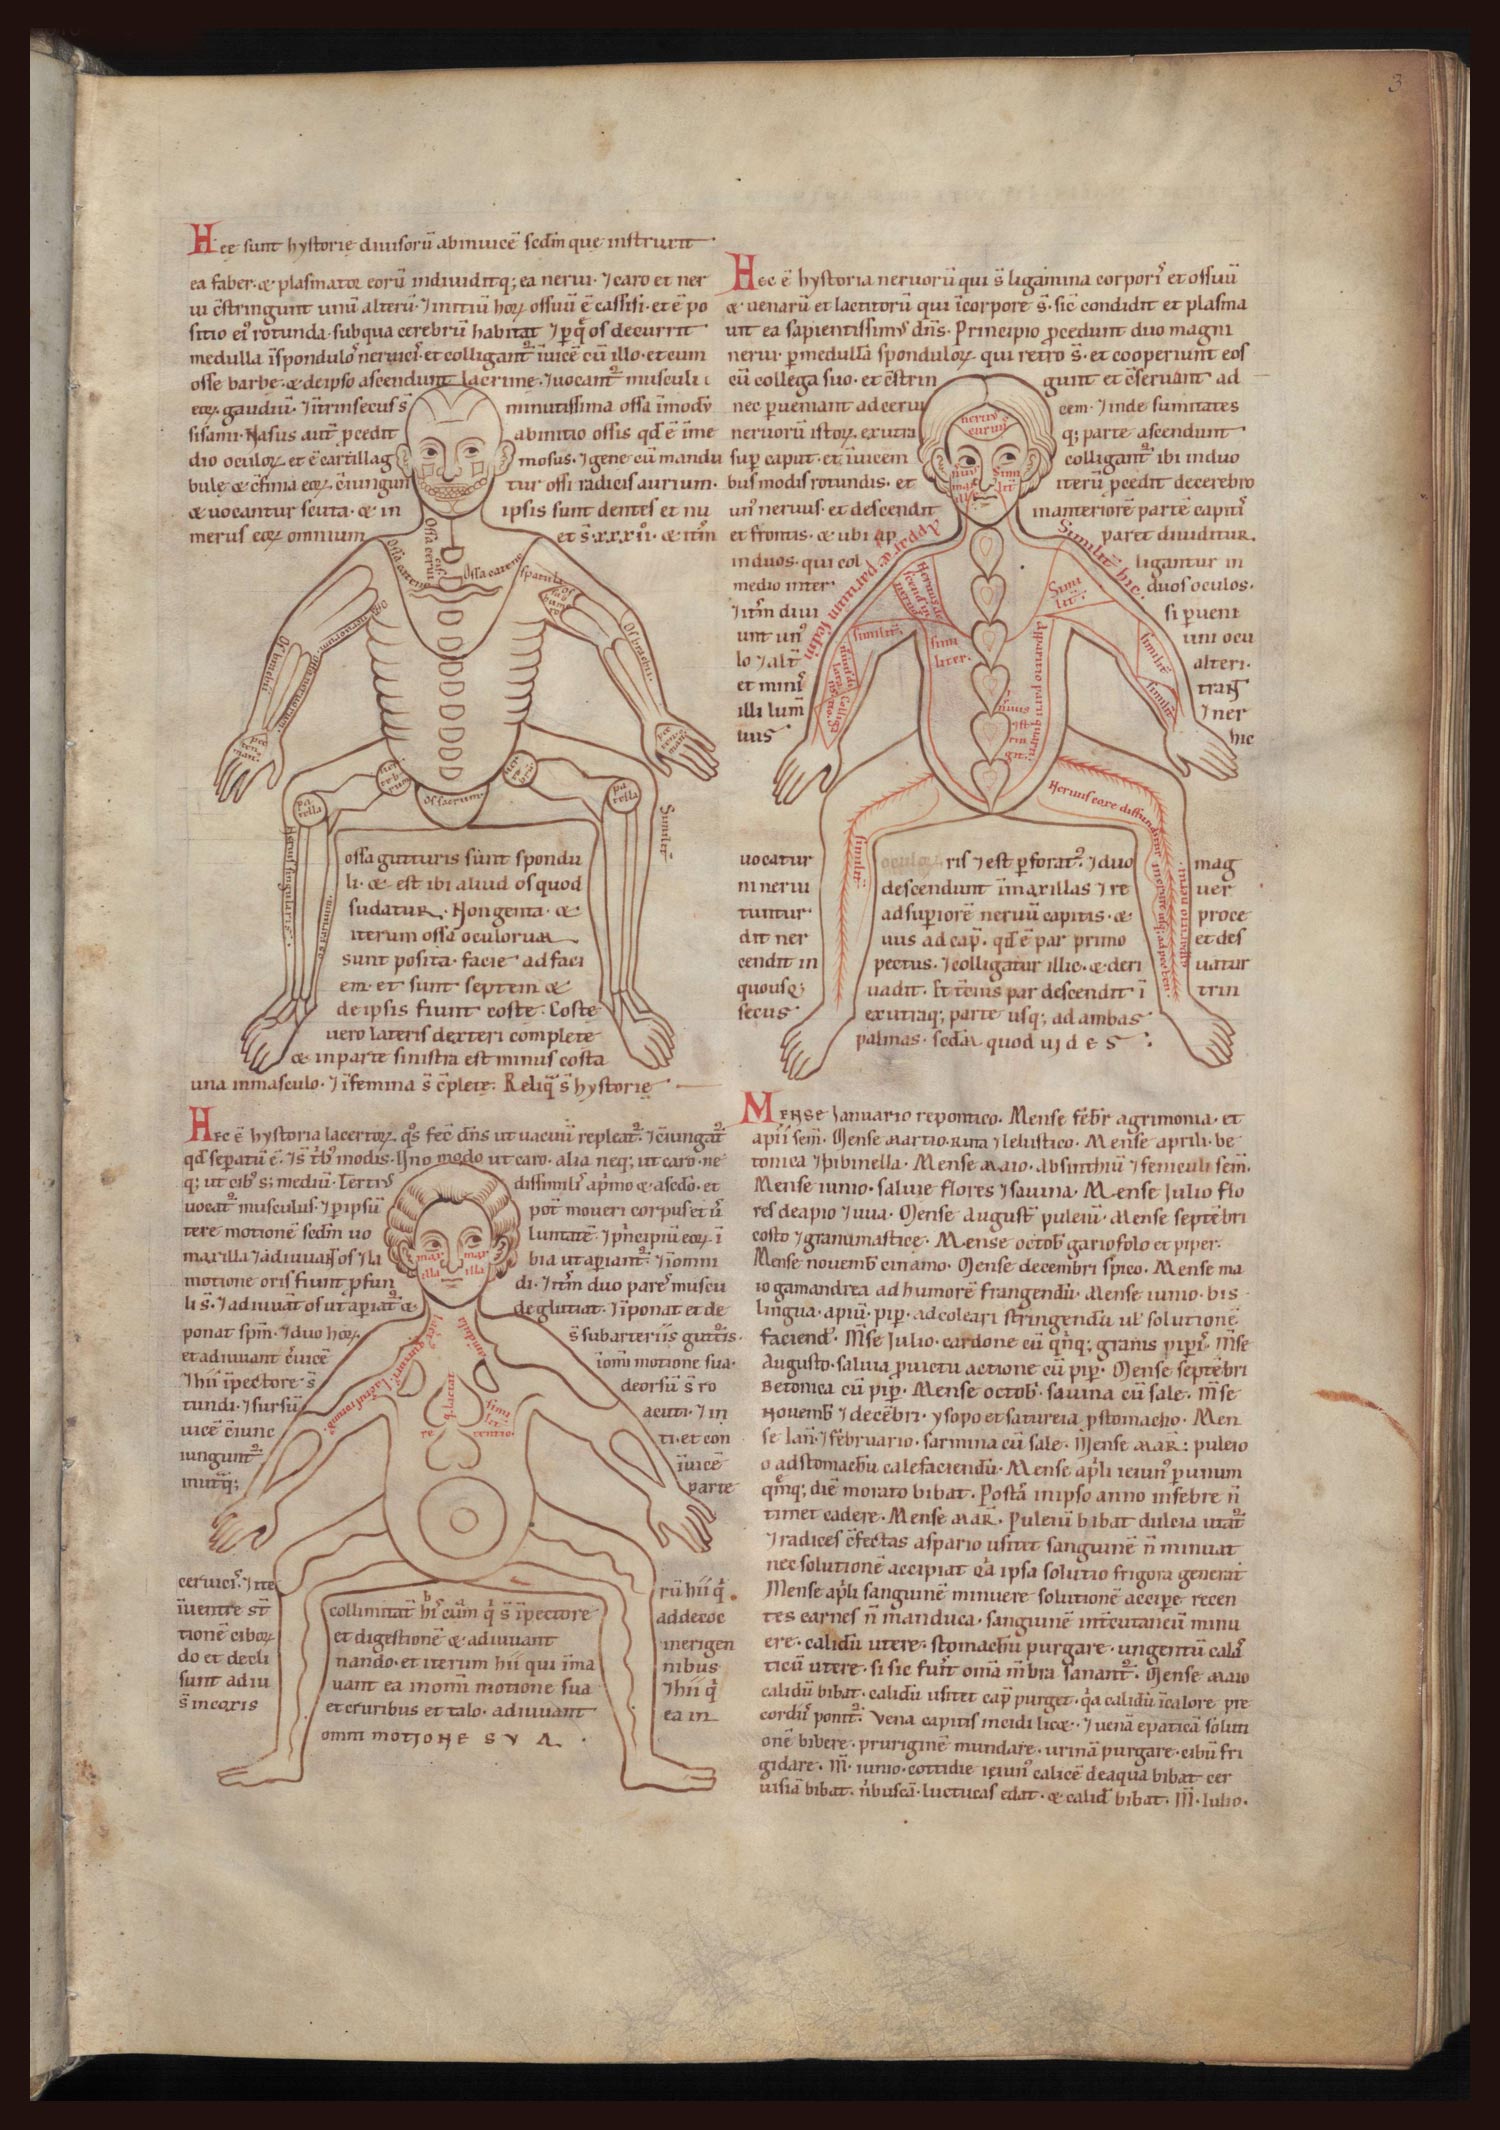 3
Hec sunt hystorie diuisorū abinuicē sedm que instruxit
ea faber. & plasmator eorū indiuiditq; ea nerui. ⁊ caro et ner
ui c̄stringunt unū alterū. ⁊ initiū hoꝝ ossuū ē cassisi. et ē po
sitio eiꝰ rotunda. sub qua cerebrū habitat ⁊ p q̄ os decurrit
medulla ī spondulos et colligant̉ īuicē cū illo. et cum
osse barbe. & de ipso ascendunt lacrime. ⁊ uocant̉ musculi
eoꝝ gaudiū. ⁊ ītrinsecus s̄ minutissima ossa ī modū
sisami. Nasus aut̄ pcedit ab initio ossis qd̄ ē ī me
dio oculoꝝ et ē cartillag mosus. ⁊ gene cū mandu
bule & c̄finia eoꝝ c̄iungun tur ossi radicis aurium.
& uocantur scuta. & in ipsis sunt dentes et nu
merus eoꝝ omnium et s̄.xxxii. & itm̄
Ossa ceruicis
Ossa catene
Ossa catene
spatula
Os brachii
Os brachii
pecten manꝰ
pecten manꝰ
uertebrum
uertebrū
Os sacrum
patella
patella
Similiter
ossa gutturis sunt spondu
li. & est ibi aliud os quod
sudatur. Non genita. &
iterum ossa oculorum
sunt posita. facie ad faci
em. et sunt septem &
de ipsis fiunt coste. Coste
uero lateris dexteri complete
& in parte sinistra est minus costa
una in masculo. ⁊ ī femina s̄ c̄plete. Reliq̄ s̄ hystorie
Hec ē hystoria neruorū qui s̄ ligamina corporis et ossuū
& uenarū et lactitorū qui ī corpore s̄. sic̄ condidit et plasma
uit ea sapientissimꝰ dn̄s. Principio procedunt duo magni
nerui. p medullā sponduloꝝ qui retro s̄. et cooperiunt eos
cū collega suo. et c̄strin gunt et c̄seruant ad
nec pueniant ad cerui cem. ⁊ inde sumitates
neruorū istoꝝ. ex utra q; parte ascendunt
sup caput. et. īuicem colligant̉ ibi in duo
bus modis rotundis. et iterū pcedit de cerebro
unꝰ neruus. et descendit in anteriorē partē capitis
et frontis. & ubi ap paret diuiditur.
in duos. qui col ligantur in
medio inter duos oculos.
⁊ itm̄ diui si puent
unt unꝰ uni ocu
lo ⁊ alt̄ alteri.
et mini
illi lum̄ ⁊ ner
uus hic
neruꝰ
Similit̄ hic.
Simi lit̄.
similit̄
simi liter.
similit̄
similit̄
uocatur oculoꝝ ris ⁊ est pforatꝰ. ⁊ duo mag
ni nerui descendunt ī maxillas ⁊ re uer
tuntur ad supiorē neruū capitis. & proce
dit ner uus ad cap̄. qd̄ ē par primo et des
cendit in pectus. ⁊ colligatur illic. & deri uatur
quousq; uadit. Et t̄cius par descendit ī trin
secus ex utraq; parte usq; ad ambas
palmas. sedm quod uides.
Hec ē hystoria lacertoꝝ q̄s fec̄ dn̄s ut uacuū repleat̉. ⁊ c̄iungat̉
qd̄ sepatū ē. ⁊ s̄ t̄bꝰ modis. Uno modo ut caro. alia neq; ut caro. ne
q; ut cibꝰ s; mediū. Tertiꝰ dissimilis a p̄mo & a scd̄o. et
uocat̉ musculus. ⁊ p ipsū pot̄ moueri corpus et ū
tere motionē sedm uo luntatē. ⁊ p̄ncipiū eoꝝ ī
maxilla ⁊ adiuuant os ⁊ la bia ut apiant̉. ⁊ ī omni
motione oris fiunt pfun di. ⁊ itm̄ duo pares muscu
li s̄. ⁊ adiuuāt os ut apiat̉ & deglutiat. ⁊ īponat et de
ponat spm̄. ⁊ duo hoꝝ s̄ sub arteriis gutt̉is.
et adiuuant c̄uicē ī omī motione sua.
⁊ hii ī pectore s̄ deorsū s̄ ro
tundi. ⁊ sursū acuti. ⁊ in
uicē c̄iunc ti. et con
iungunt̉ īuicē
mutq; parte
maxilla
maxilla
similiter
ceruicis. ⁊ ite rū hii q̄
ī uentre st̄ collimitat̄ his cūm q̄ s̄ ī pectore ad decoc
tionē ciboꝝ et digestionē & adiuuant in erigen
do et decli nando. et iterum hii qui ī ma nibus
sunt adiu uant ea in omni motione sua ⁊ hii q̄
s̄ in coxis et cruribus et talo. adiuuant ea in
omni motione sua.
Mense Ianuario repontico. Mense febr̄ agrimonia. et
apii sem̄. Mense martio. ruta ⁊ leiustico. Mense aprili. be
tonica ⁊ pibinella. Mense maio. absinthiū ⁊ feniculi sem̄.
Mense iunio. saluie flores ⁊ sauina. Mense Julio flo
res de apio ⁊ uua. Mense august̄ puleiū. Mense septēbri
costo ⁊ granumastice. Mense octob̄ gariofolo et piper.
Mense nouemb̄ cinamo. Mense decembri spico. Mense ma
io gamandrea ad humorē frangendū. Mense iunio. bis
lingua. apiū. pip. ad coleari stringendū ul̄ solutionē
faciend̄. Mse Julio. cardone cū q̄nq; granis pipis. Mse
Augusto. saluia p uictu actione cū pip. Mense septēbri
Betonica cū pip. Mense octob̄. sauina cū sale. Mse
Nouemb̄ ⁊ decēbri. ysopo et satureia p stomacho. Men
se Ian̄. ⁊ februario. sarmina cū sale. Mense mar̄: puleio
o ad stomachū calefaciendū. Mense ap̄li ieiunꝰ p unum
q̄mq; diē morato bibat. Postā in ipso anno infebre n̄
timet cadere. Mense mar̄. Puleiū bibat dulcia utat̉
⁊ radices c̄fectas aspario usitet sanguinē n̄ minuat
nec solutionē accipiat q̄a ipsa solutio frigora generat
Mense ap̄li sanguinē minuere solutionē accipe recen
tes carnes n̄ manduca. sanguinē int̄cutancū minu
ere. calidū utere. stomachū purgare. ungentū cala
ticū utere. si sic fūit om̄a m̄bra sanant̉. Mense maio
calidū bibat. calidū usitet cap̄ purget. q̄a calidū ī calore pre
cordiis ponit̉. Vena capitis incidi licꝫ. ⁊ uenā epaticā soluti
onē bibere. pruriginē mundare. urinā purgare. cibū fri
gidare. M̄. iunio. cottidie ieiunꝰ calicē de aqua bibat cer
uisiā bibat. n̄ buscā. luctucas edat. & calid̄ bibat. M̄. Iulio.